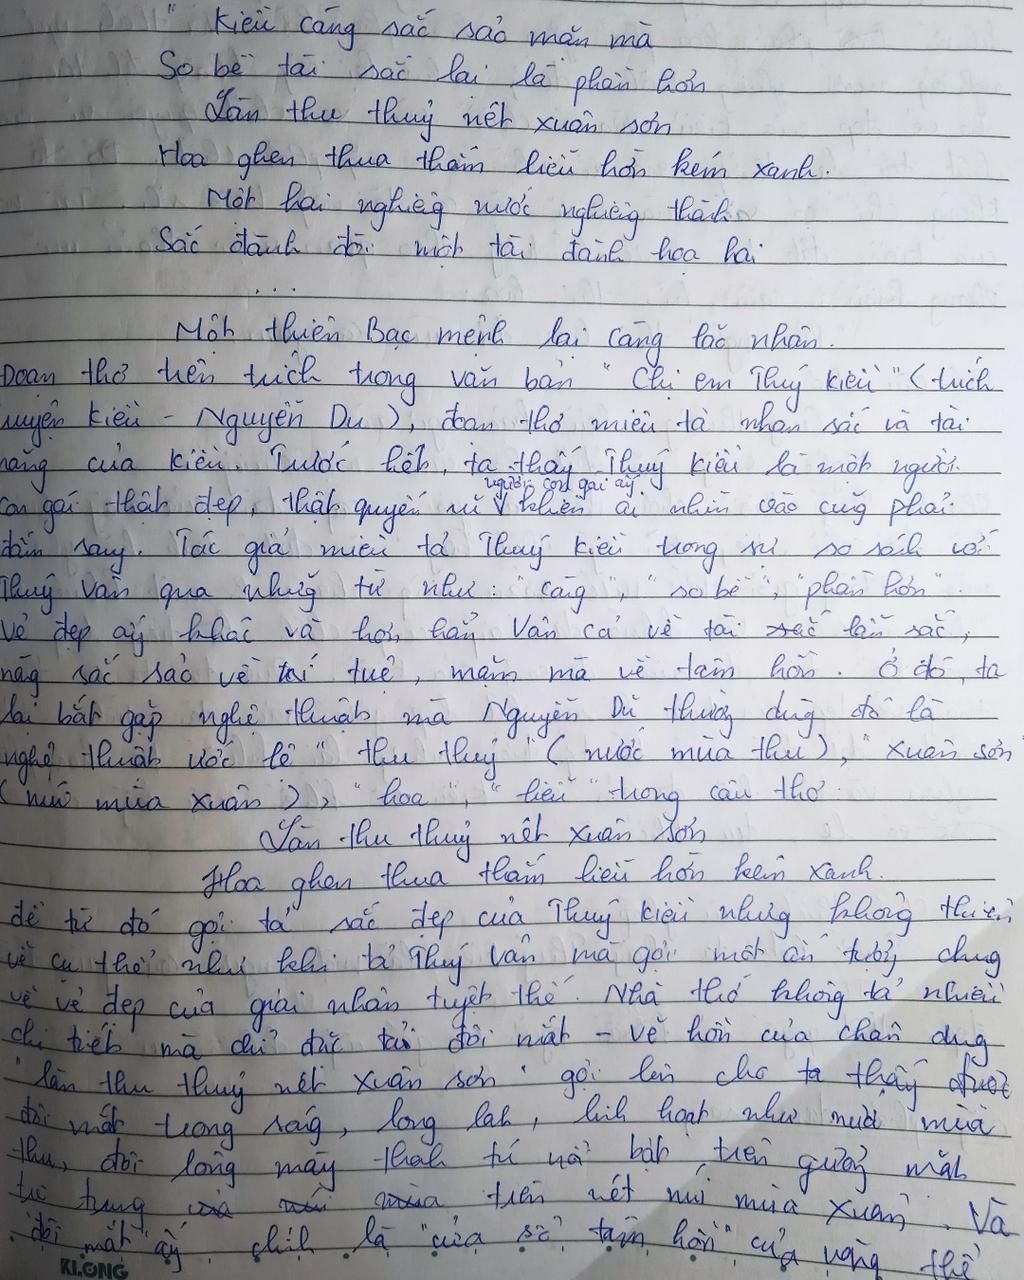 " Kiều càng sắc sảo mặn mà
So bề tài sắc lại là phần hơn
Làn thu thuỷ nét xuân sơn
Hoa ghen thua thắm liễu hờn kém xanh.
Một hai nghiêng nước nghiêng thành
Sắc đành đòi một tài đành hoạ hai
...
Một thiên Bạc mệnh lại càng não nhân.
Đoạn thơ trên trích trong văn bản "Chị em Thuý Kiều" (trích
truyện Kiều - Nguyễn Du), đoạn thơ miêu tả nhan sắc và tài
năng của Kiều. Trước hết, ta thấy Thuý Kiều là một người
con gái thật đẹp, thật quyến rũ người con gái ấy khiến ai nhìn vào cũng phải
đắm say. Tác giả miêu tả Thuý Kiều trong sự so sánh với
Thuý Vân qua những từ như: "càng", "so bề", "phần hơn".
Vẻ đẹp ấy khác và hơn hẳn Vân cả về tài sắc lẫn sắc,
nàng sắc sảo về trí tuệ, mặn mà về tâm hồn. Ở đó, ta
lại bắt gặp nghệ thuật mà Nguyễn Dũ thường dùng đó là
nghệ thuật ước lệ "thu thuỷ" (nước mùa thu), "xuân sơn"
(núi mùa xuân), "hoa", "liễu" trong câu thơ.
Làn thu thuỷ nét xuân sơn
Hoa ghen thua thắm liễu hờn kém xanh.
để từ đó gợi tả sắc đẹp của Thuý Kiều nhưng không thiên
về cụ thể như khi tả Thuý Vân mà gợi một ấn tượng chung
về vẻ đẹp của giai nhân tuyệt thế. Nhà thơ không tả nhiều
chi tiết mà chỉ đặc tả đôi mắt - vẻ hồn của chân dung
"làn thu thuỷ nét xuân sơn" gợi lên cho ta thấy được
đôi mắt trong sáng, long lanh, linh hoạt như nước mùa
thu, đôi lông mày thanh tú nổi bật trên gương mặt
trẻ trung và núi mùa trên nét núi mùa xuân. Và
đôi mắt ấy, chính là "cửa sổ tâm hồn" của vàng thể
KLONG